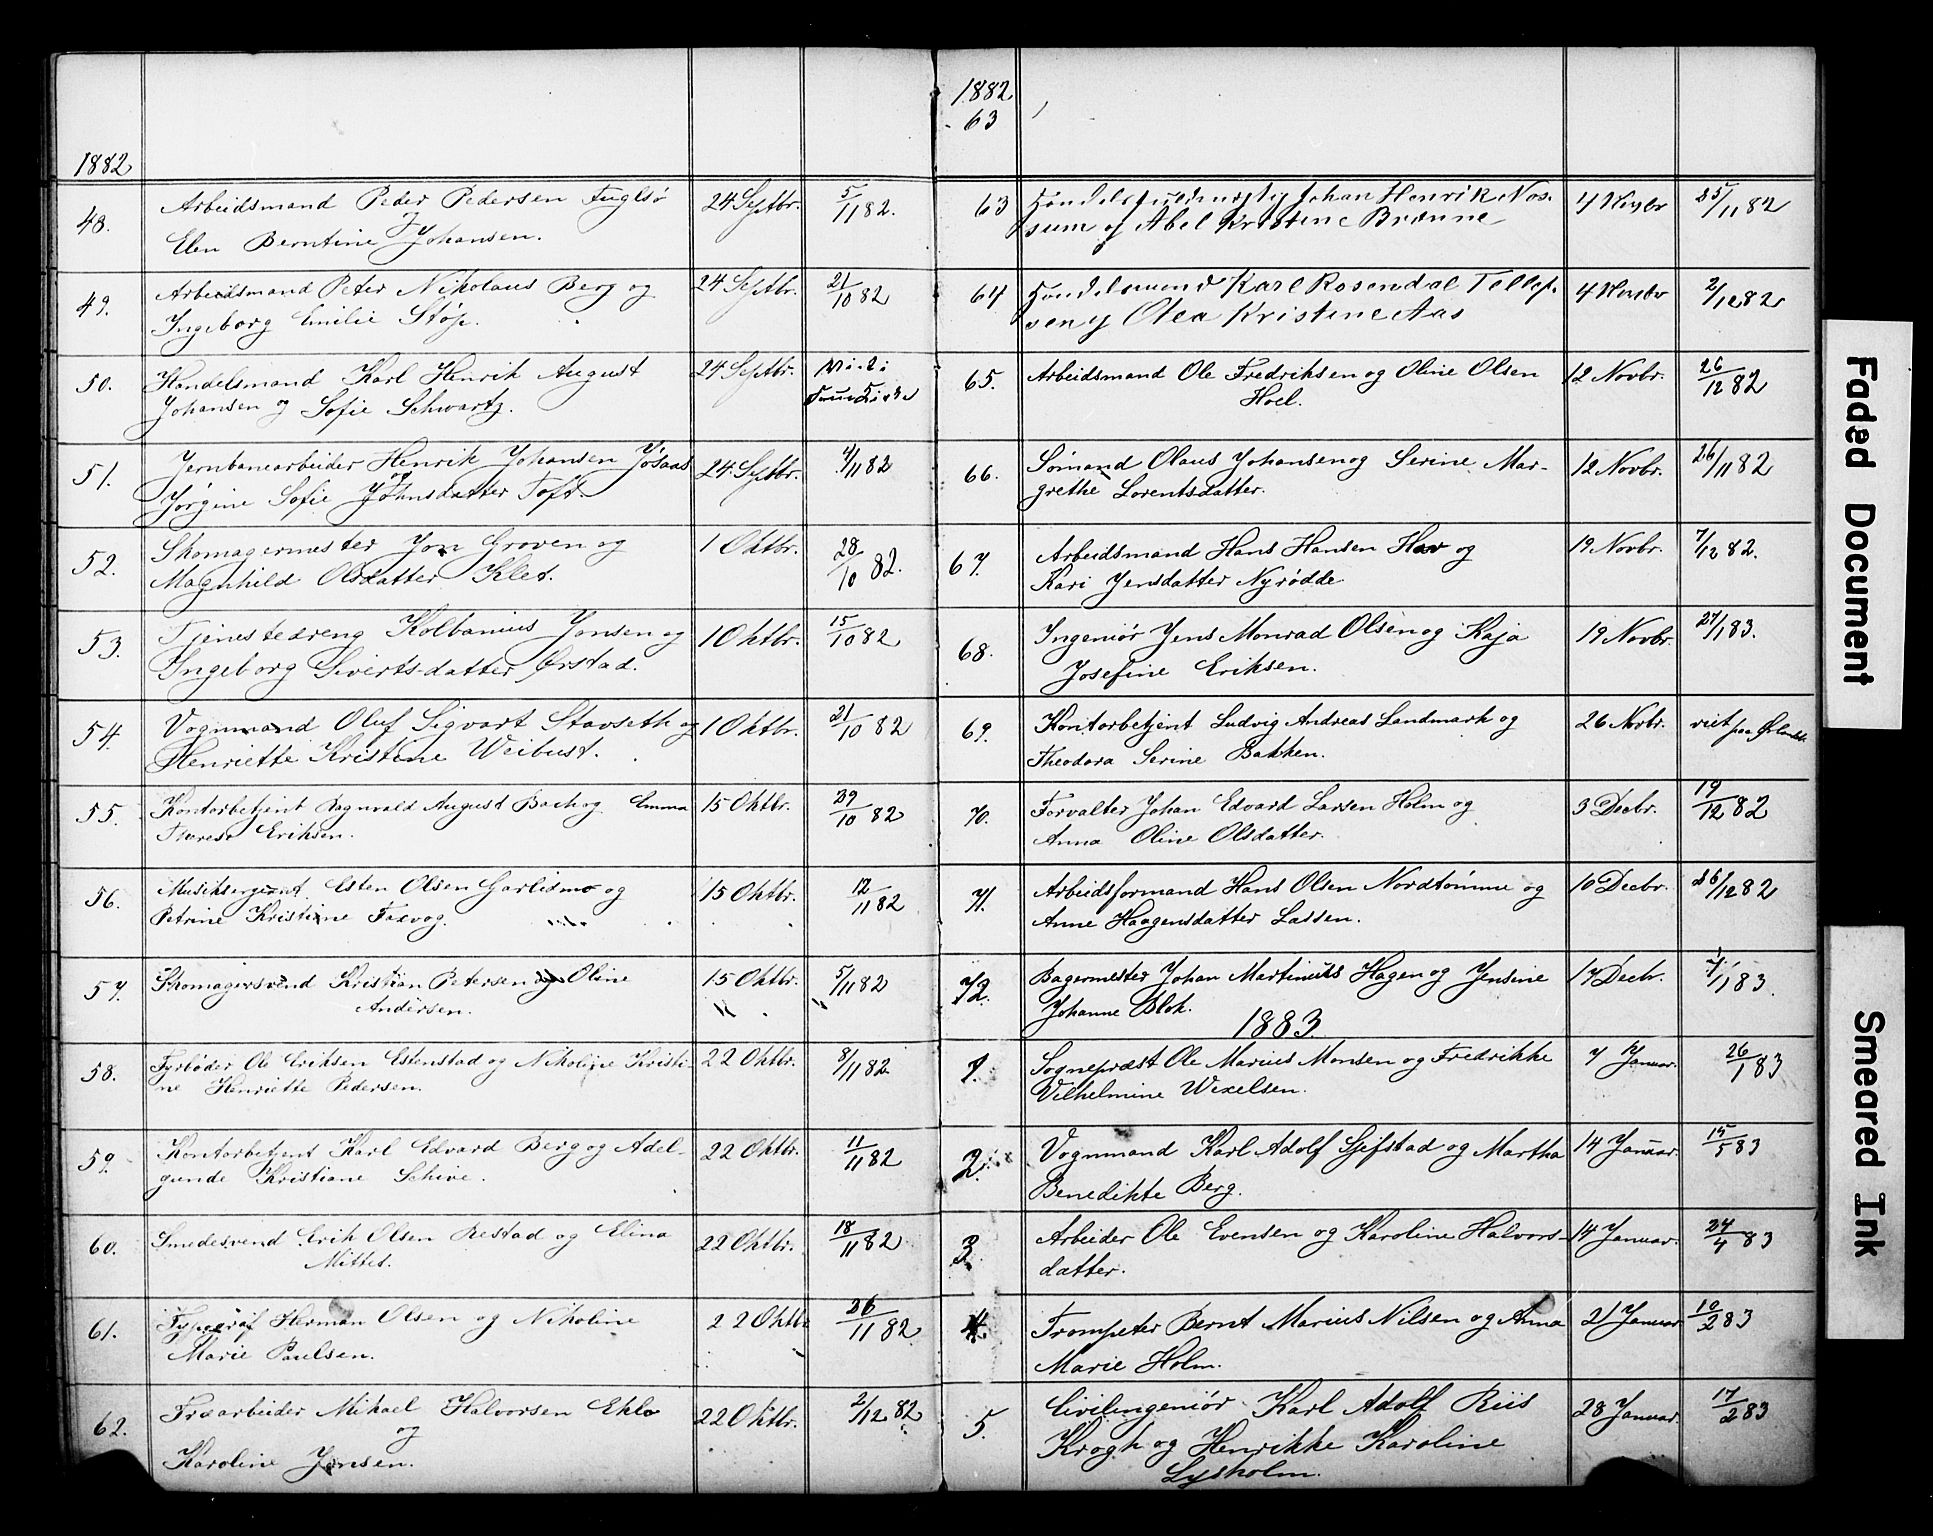 1882
48. Arbeidsmand Peder Pedersen Fuglsø 24 Septbr. 5/11 82.
og
Elen Berntine Johansen.
49. Arbeidsmand Peter Nikolaus Berg og 24 Septbr. 21/10 82
Ingeborg Emilie Støp.
50. Handelsmand Karl Henrik August 24 Septbr.
Johansen og Sofie Schwartz.
51. Jernbanearbeider Henrik Johansen Jøsaas 24. Septbr. 4/11 82
og
Jørgine Sofie Johnsdatter Toft.
52. Skomagermester Jon Groven og 1 Oktbr. 28/10 82.
Magnhild Olsdatter Klet.
53. Tjenestedreng Kolbanius Jonsen og 1 Oktbr. 15/10 82
Ingeborg Sivertsdatter Ørstad.
54. Vognmand Oluf Sigvart Stavseth og 1 Oktbr. 21/10 82
Henriette Kristine Weibust.
55. Kontorbetjent Ragnvald August Bach og Emma 15 Oktbr. 29/10 82
Therese Eriksen.
56. Musiksergeant Esten Olsen Garlismo og 15 Oktbr. 12/11 82
Petrine Kristine Faxvog.
57. Skomagersvend Kristian Petersen og Oline 15 Oktbr. 5/11 82
Andersen.
58. Fyrbøder Ole Eriksen Estenstad og Nikoline Kristi- 22 Oktbr. 8/11 82
ne Henriette Pedersen.
59. Kontorbetjent Karl Edvard Berg og Adel- 22 Oktbr. 11/11 82
gunde Kristiane Schive.
60. Smedesvend Erik Olsen Restad og Elina 22 Oktbr. 18/11 82
Mittet.
61. Typograf Herman Olsen og Nikoline 22 Oktbr 26/11 82
Marie Paulsen.
62. Træarbeider Mikael Halvorsen Ehlo 22 Oktbr. 2/12 82
og
Karoline Jensen.
1882
63
63 Johan Henrik Nos- 4 Novbr 25/11 82
sum og Abel Kristine Brænne
64 Handelsmand Karl Rosendal Tellef- 4 Novbr 2/12 82
sen og Olea Kristine Aas
65. Arbeidsmand Ole Fredriksen og Oline Olsen 12 Novbr. 26/12 82
Hoel.
66. Sømand Olaus Johansen og Serine Mar- 12 Novbr. 26/11 82
grethe Lorentsdatter.
67. Arbeidsmand Hans Hansen Hav og 19 Novbr. 7/12 82.
Kari Jensdatter Nyrødde.
68. Ingeniør Jens Monrad Olsen og Kaja 19 Novbr. 27/1 83.
Josefine Eriksen.
69. Kontorbetjent Ludvig Andreas Landmark og 26 Novbr. viet paa
Theodora Serine Bakken.
70. Forvalter Johan Edvard Larsen Holm og 3 Decbr. 19/12 82
Anna Oline Olsdatter.
71. Arbeidsformand Hans Olsen Nordtømme og 10 Decbr. 26/12 82
Anne Haagensdatter Lassen.
72. Bagermester Johan Martinius Hagen og Jensine 17 Decbr. 7/1 83
Johanne Blok.
1883.
1. Sogneprest Ole Marius Monsen og Fredrikke 7 Januar. 26/1 83
Vilhelmine Wexelsen.
2. Vognmand Karl Adolf Sjefstad og Martha 14 Januar. 15/5 83
Benedikte Berg.
3. Arbeider Ole Evensen og Karoline Halvors- 14 Januar. 24/4 83
datter.
4. Trompeter Bernt Marius Nilsen og Anna 21 Januar 10/2 83
Marie Holm.
5. Civilingeniør Karl Adolf Riis 28 Januar. 17/2 83
Krogh og Henrikke Karoline
Lysholm.
Faded Document
Smeared Ink